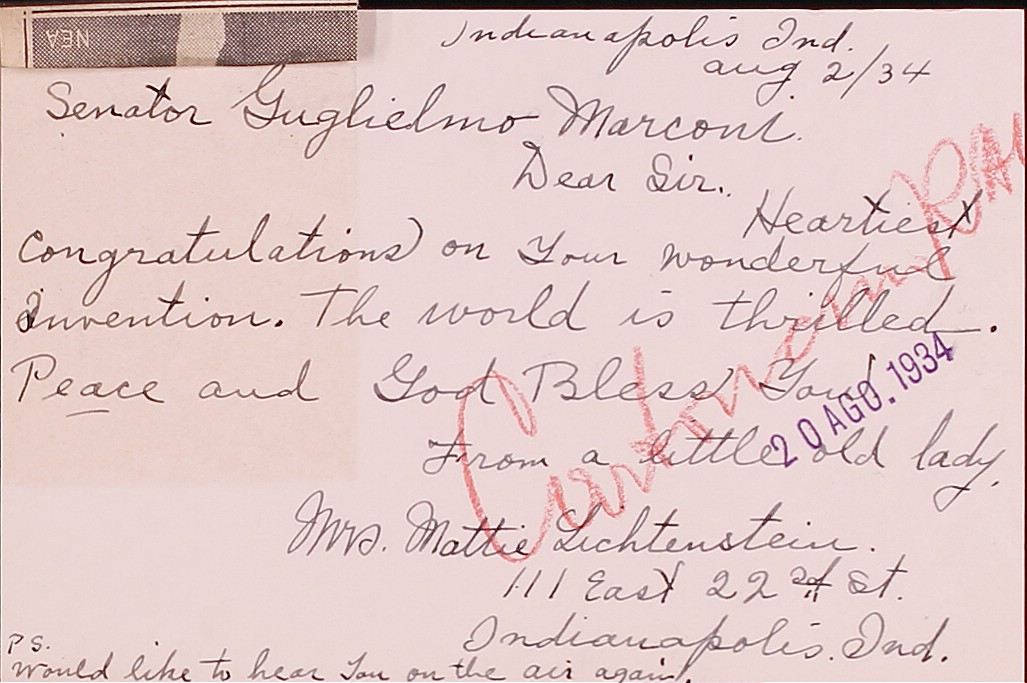 NEA
Indianapolis Ind.
Aug 2/34
Senator Guglielmo Marconi.
Dear Sir.
Heartiest
Congratulations on Your wonderful
Invention. The world is thrilled.
Peace and God Bless You
20 AGO. 1934
From a little old lady,
Mrs. Mattie Lichtenstein.
111 East 22nd St.
Indianapolis. Ind.
P.S.
Would like to hear You on the air again.